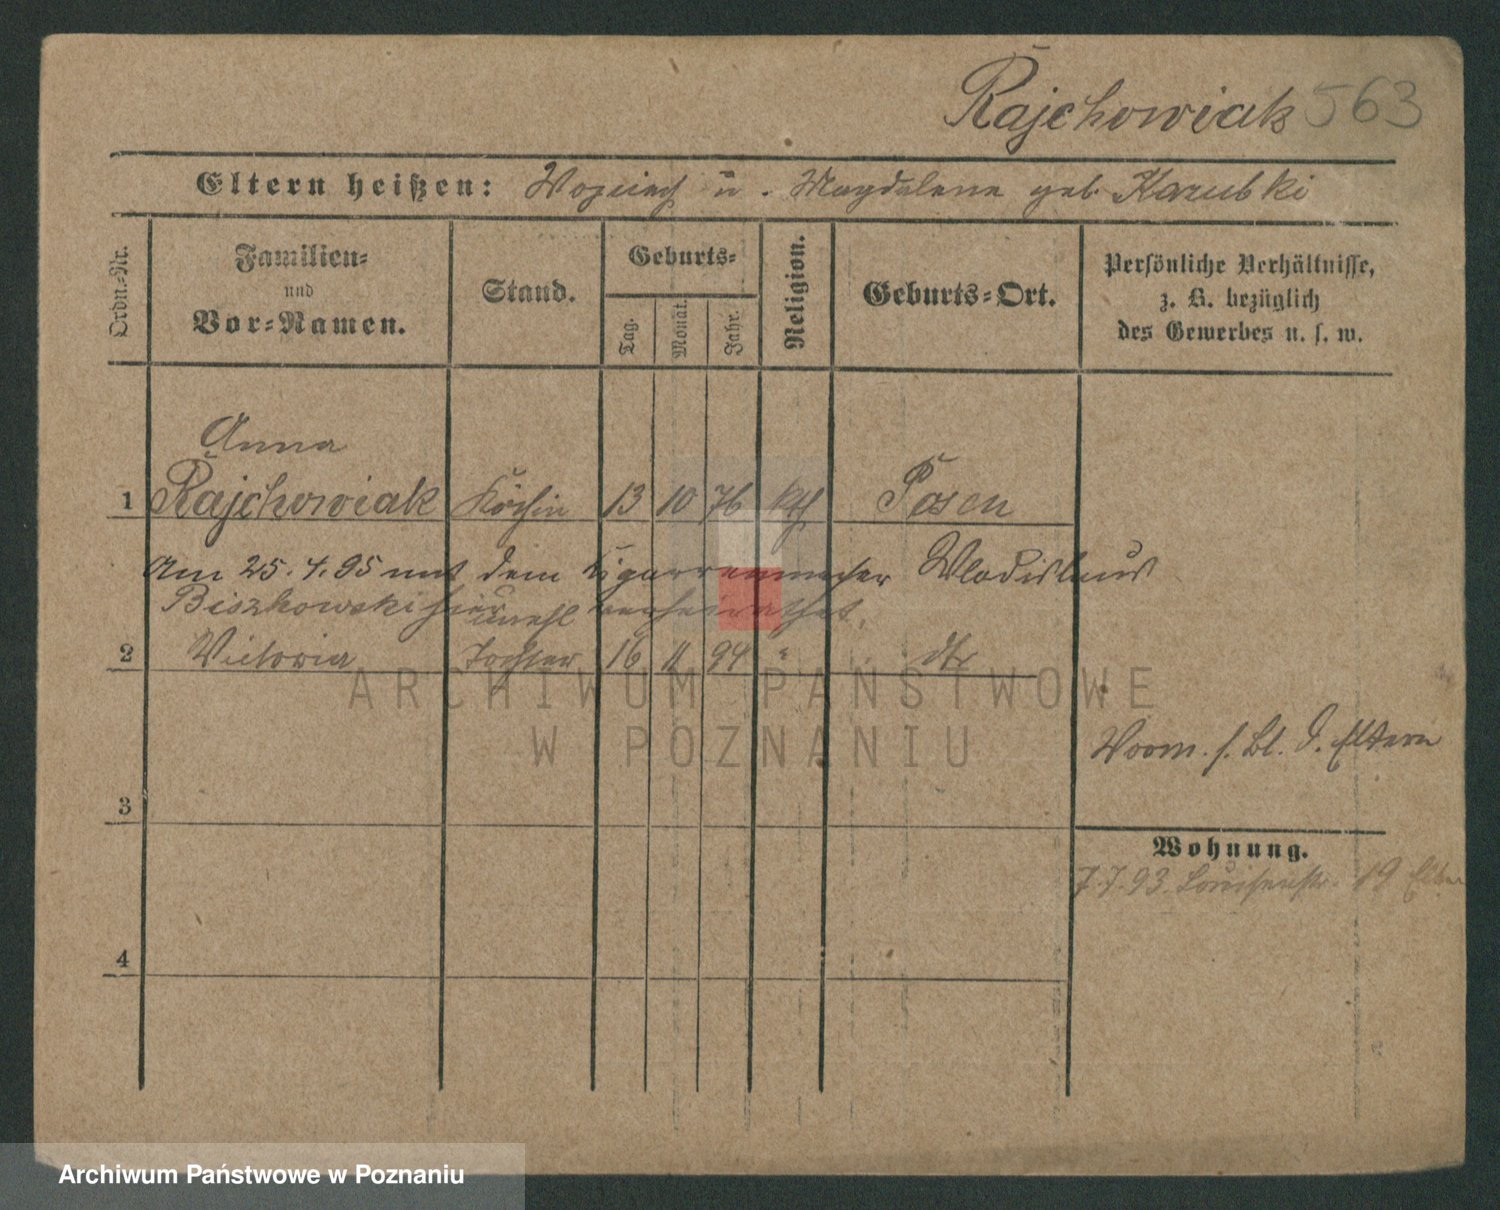 Rajchowiak 563
Eltern heißen: Woyciech u. Magdalene geb. Kazubki
Ordn.-Nr.
Familien-
und
Vor-Namen.
Stand.
Geburts-
Tag.
Monat.
Jahr.
Religion.
Geburts-Ort.
Persönliche Verhältnisse,
z. B. bezüglich
des Gewerbes u. s. w.
Anna
1 Rajchowiak Köchin 13 10 76 kth Posen
Am 25.4.95 mit dem Zigarrenmacher Wladislaus
Biszkowski hier verheirathet.
unehl
2 Victoria Tochter 16 11 94 " dto
Vorm. s. Bl. d. Eltern
3
Wohnung.
7.7.93. Louisenstr. 19 Eltern
4
ARCHIWUM PAŃSTWOWE
W POZNANIU
Archiwum Państwowe w Poznaniu